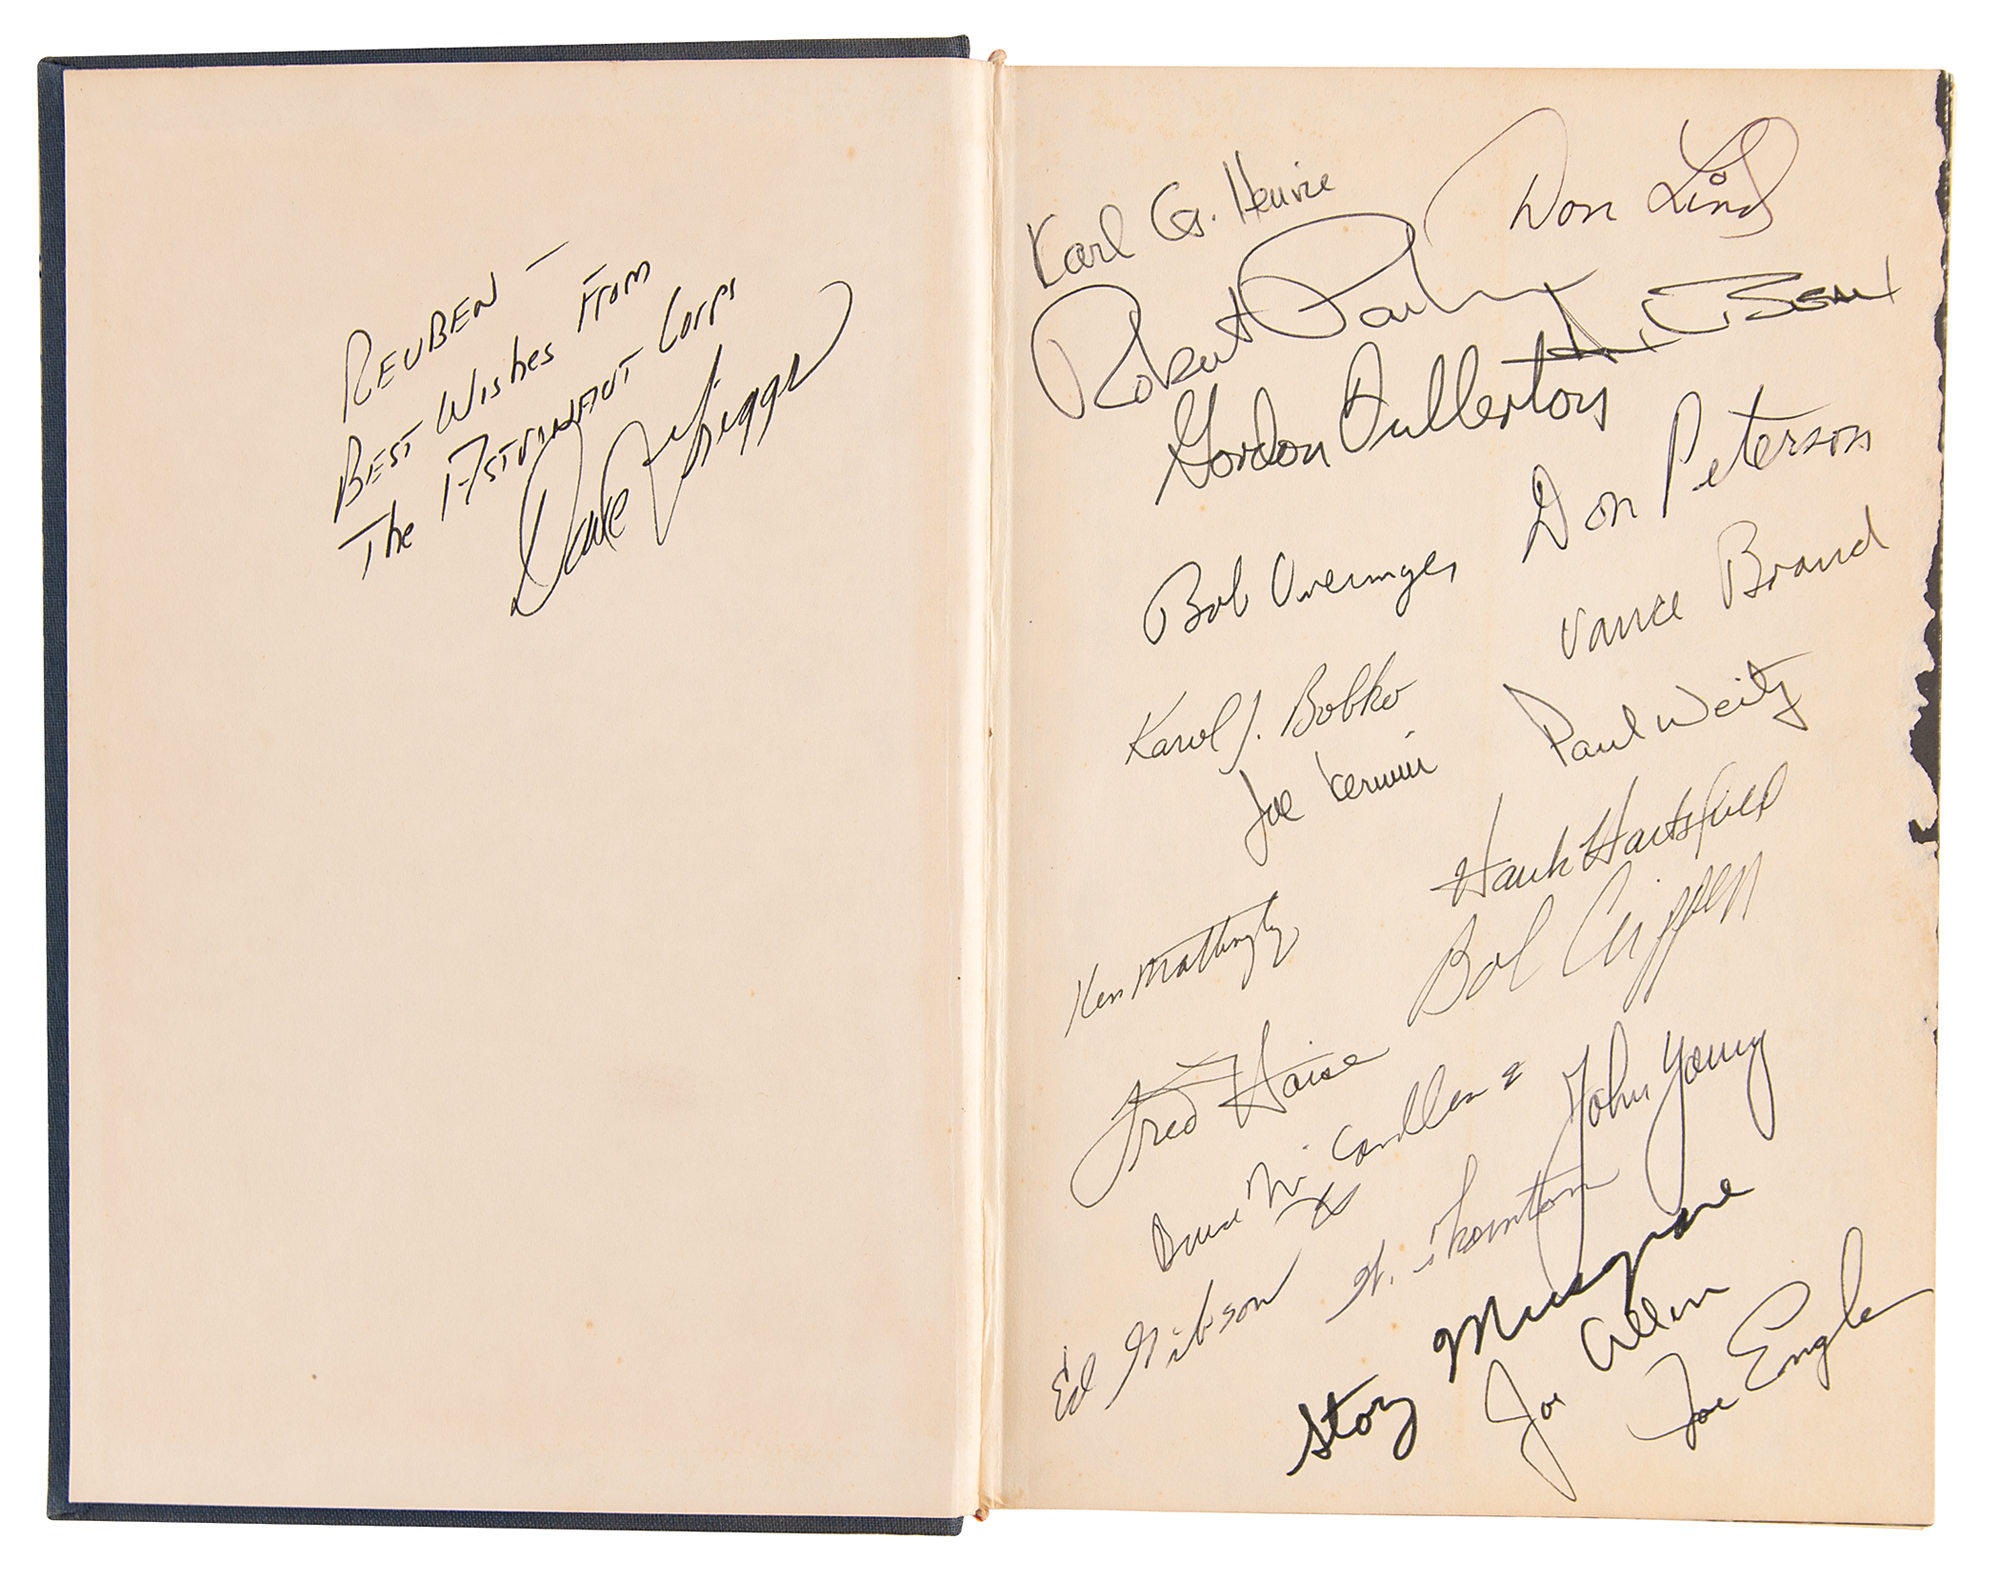 REUBEN -
BEST WISHES FROM
The ASTRONAUT Corps
Dave Griggs
Karl G. Henize
Don Lind
Robert Parker
Alan L Bean
Gordon Fullerton
Don Peterson
Bob Overmyer
Vance Brand
Karol J. Bobko
Paul Weitz
Joe Kerwin
Hank Hartsfield
Ken Mattingly
Bob Crippen
Fred Haise
John Young
Bruce McCandless
W. Thornton
Ed Gibson
Story Musgrave
Joe Allen
Joe Engle